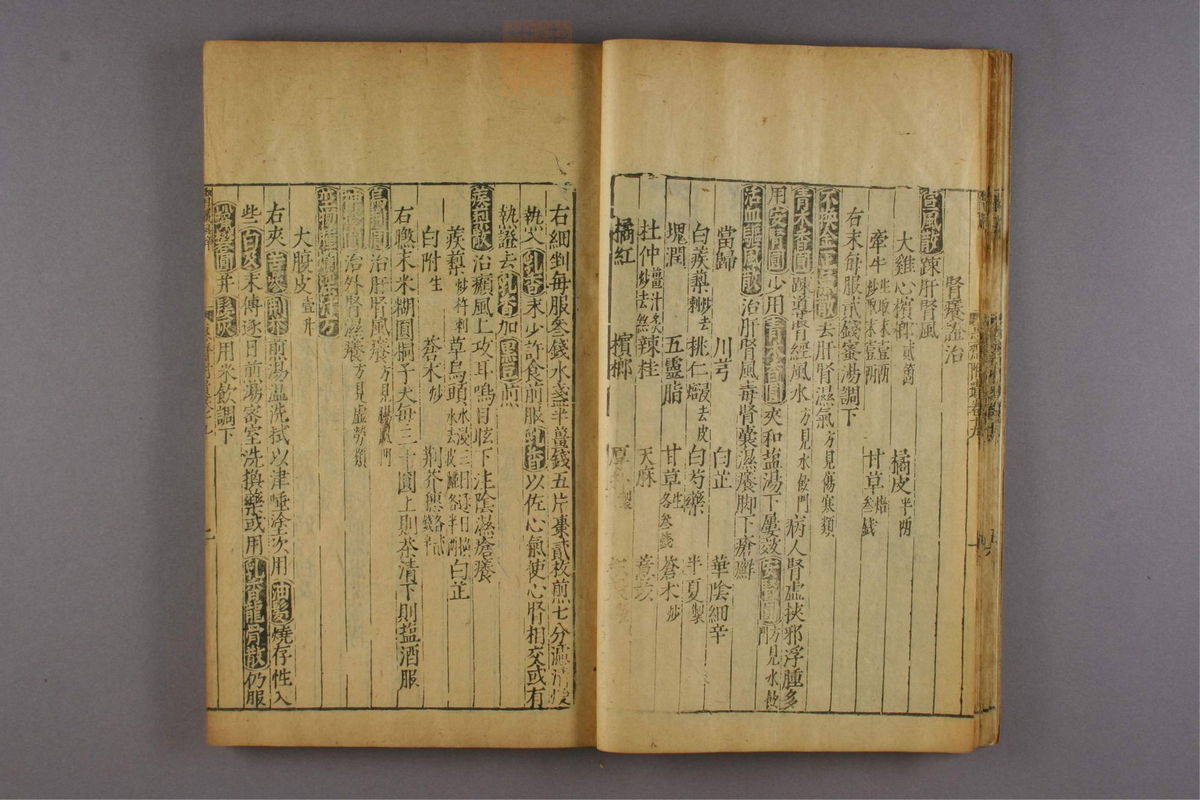 腎癢證治
宣風散踈肝腎風
大雞心檳榔貳箇 橘皮半兩
牽牛生取末壹兩炒取末壹兩 甘草焙叁錢
右末每服貳錢蜜湯調下
不換金正氣散去肝腎濕氣方見傷寒類
青木香圓踈導腎經風水方見水飲門病人腎虛挾邪浮腫多
用安腎圓少用青木香圓夾和盐湯下屢效安腎圓方見水飲門
活血驅風散治肝腎風毒腎囊濕癢脚下瘡癬
當歸 川芎 白芷 華陰細辛
白蒺藜炒去刺 桃仁浸去皮焙 白芍藥 半夏製
槐潤 五靈脂 甘草生各叁錢 蒼木炒
杜仲薑汁炙炒去絲 辣桂 天麻 薏苡
橘紅 檳榔 厚朴製
右細剉每服叁錢水盞半薑錢五片棗貳枚煎七分
熱入乳香末少許食前服乳香以佐心氣使心腎相交或有
熱證去乳香加黑豆煎
蒺蔾散治癩風上攻耳鳴目眩下注陰濕瘡癢
蒺蔾炒杵刺 草烏頭水浸三日逐日換水去皮 白芷
白附生 蒼木炒 荆芥穗
右㬠末米糊圓桐子大每三十圓上則茶清下則盐酒服
烏荊圓治肝腎風癢方見
治外腎濕癢方見虛勞類
大腹皮壹片
右夾苦參荊芥煎湯温洗拭以津唾塗次用油髮燒存性入
些白及末傅逐日煎湯密室洗換藥或用乳香龍骨散仍服
圓并用米飲調下